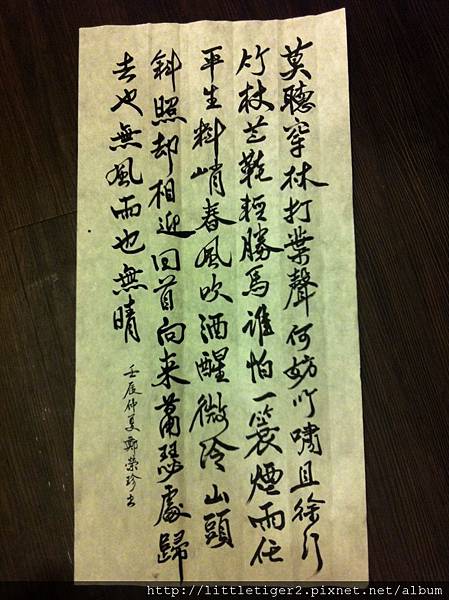 莫聽穿林打葉聲何妨吟嘯且徐行
竹杖芒鞋輕勝馬誰怕一蓑煙雨任
平生料峭春風吹酒醒微冷山頭
斜照却相迎回首向来蕭瑟處歸
去也無風雨也無晴
壬辰仲夏鄭榮珍书
http://littletiger2.pixnet.net/album